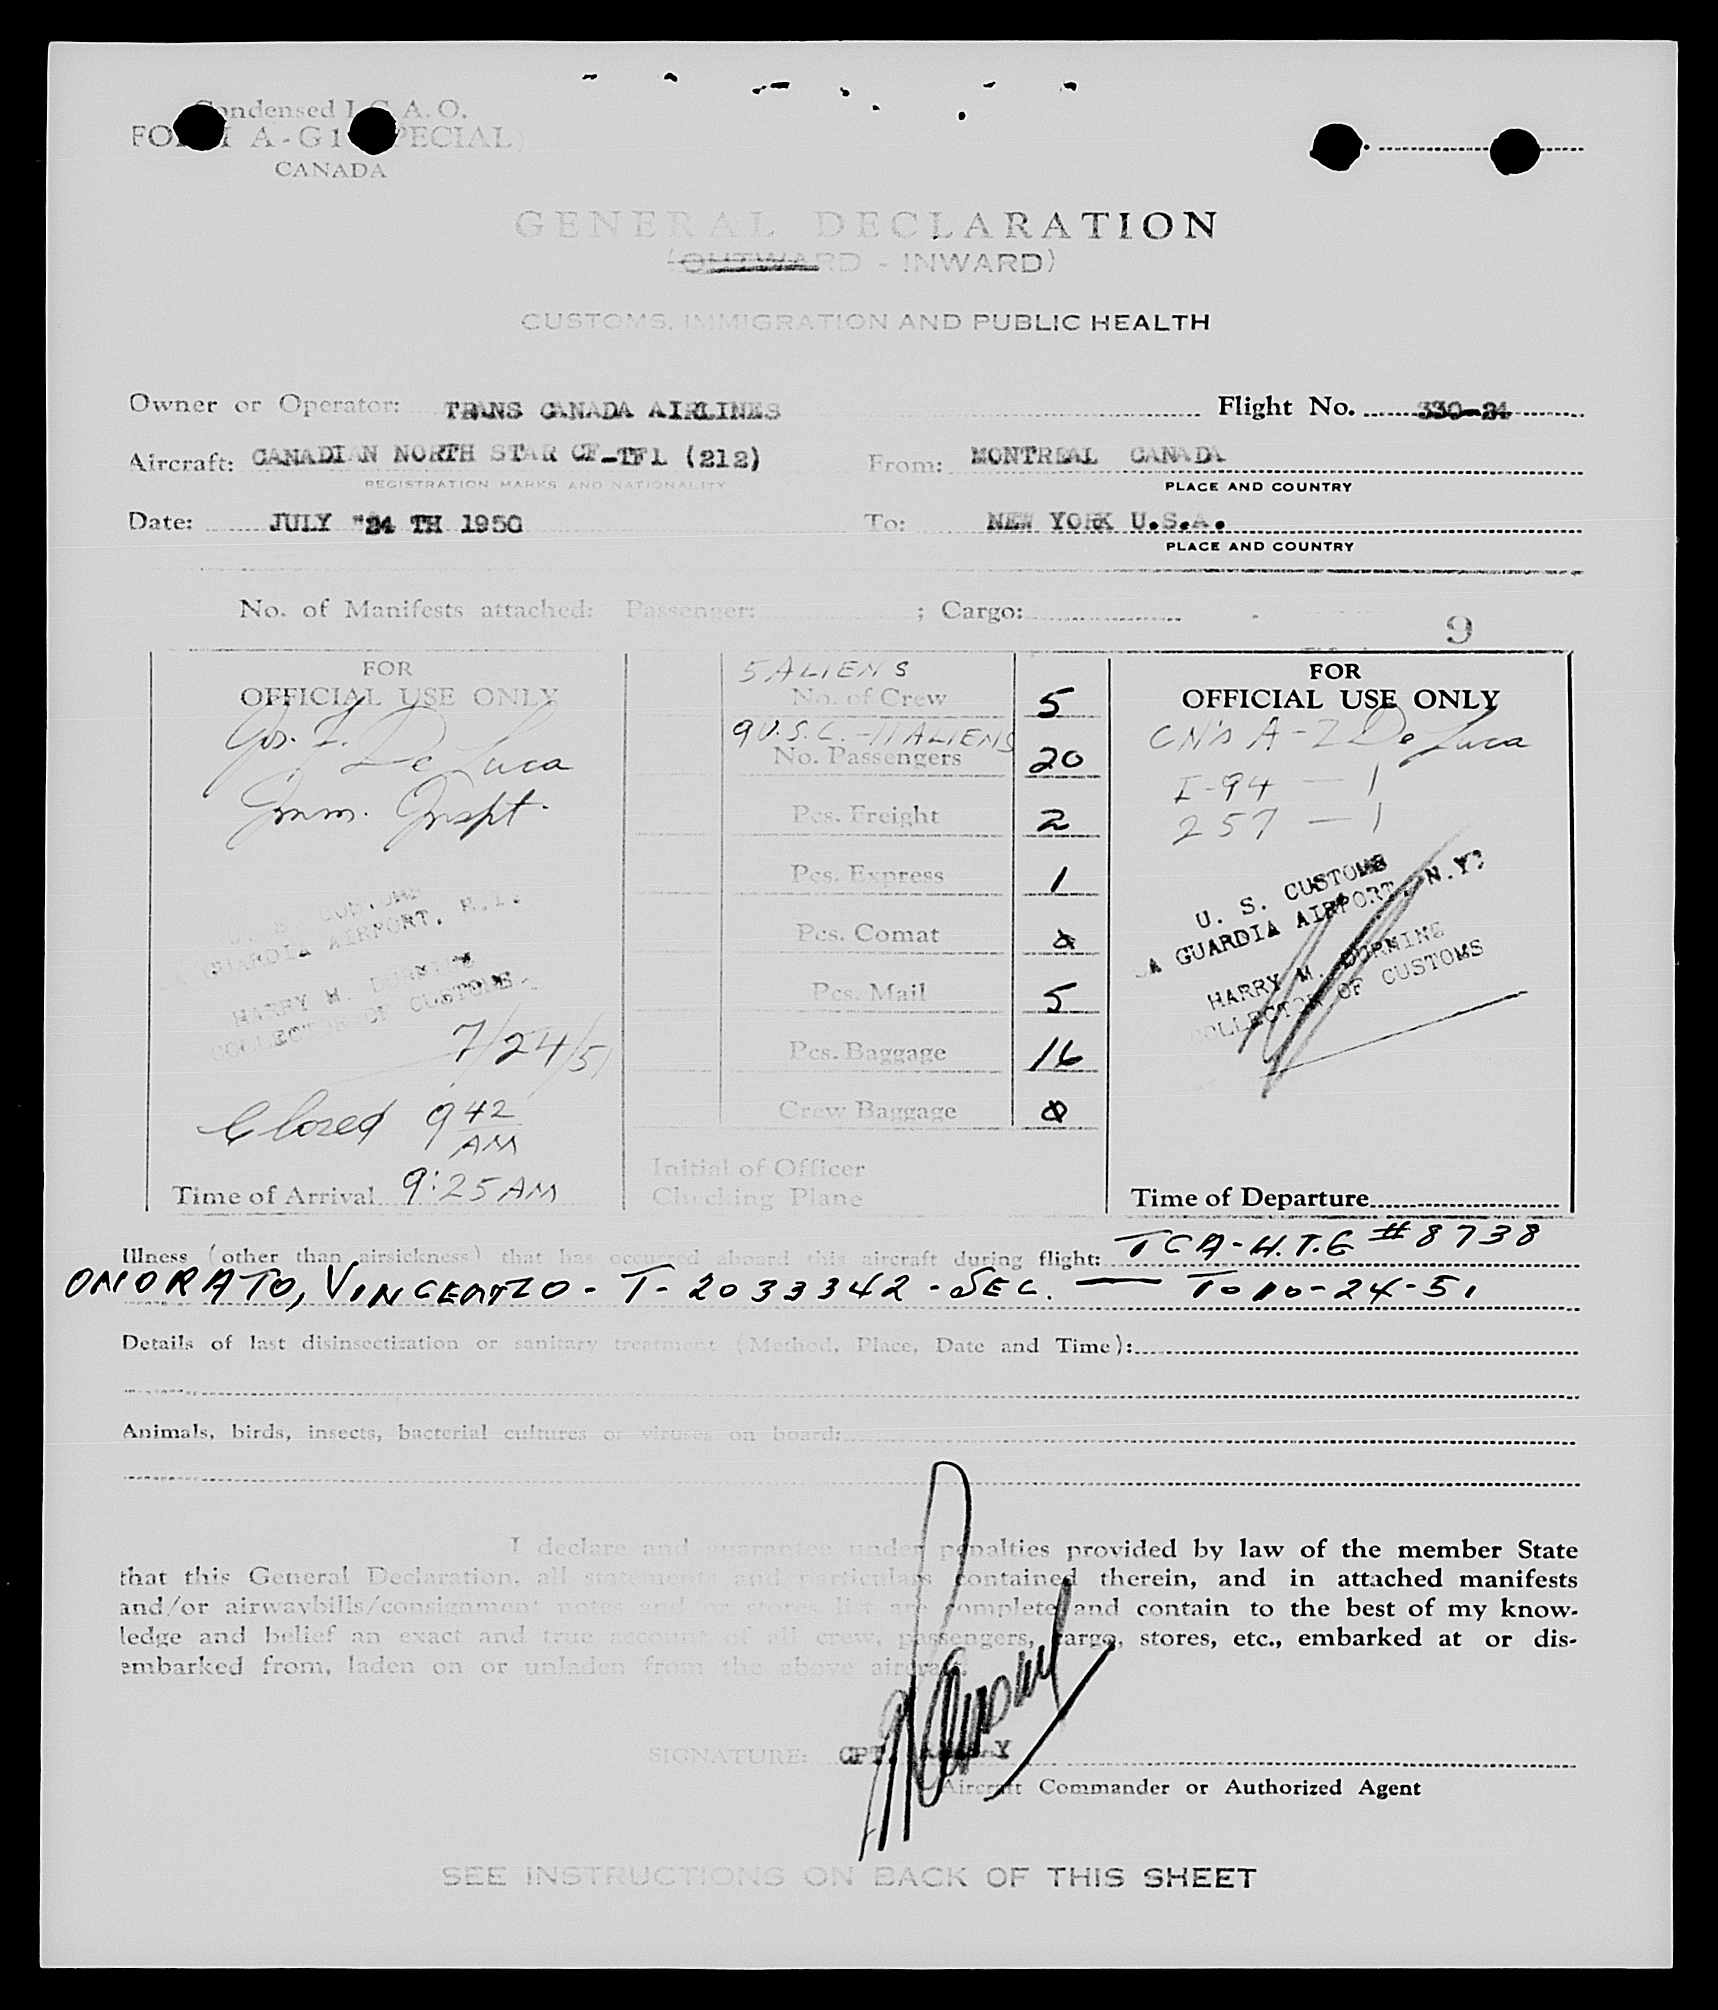 Condensed I.C.A.O.
FORM A-G1 (SPECIAL)
CANADA
GENERAL DECLARATION
(OUTWARD - INWARD)
CUSTOMS, IMMIGRATION AND PUBLIC HEALTH
Owner or Operator: TRANS CANADA AIRLINES Flight No. 330-24
Aircraft: CANADIAN NORTH STAR CF-TFL (212) From: MONTREAL CANADA
REGISTRATION MARKS AND NATIONALITY PLACE AND COUNTRY
Date: JULY "24 TH 1950 To: NEW YORK U.S.A.
PLACE AND COUNTRY
No. of Manifests attached: Passenger: ; Cargo:
9
FOR
OFFICIAL USE ONLY
Jos. F. De Luca
Imm. Inspt.
U. S. CUSTOMS
LA GUARDIA AIRPORT, N.Y.
HARRY M. DURNING
COLLECTOR OF CUSTOMS
7/24/51
Closed 9 42
AM
Time of Arrival 9:25 AM
5 ALIENS
No. of Crew 5
9 U.S.C. - 11 ALIENS
No. Passengers 20
Pcs. Freight 2
Pcs. Express 1
Pcs. Comat 0
Pcs. Mail 5
Pcs. Baggage 16
Crew Baggage 0
Initial of Officer
Checking Plane
FOR
OFFICIAL USE ONLY
CN's A-Z De Luca
I-94 — 1
257 — 1
U. S. CUSTOMS
LA GUARDIA AIRPORT, N.Y.
HARRY M. DURNING
COLLECTOR OF CUSTOMS
Time of Departure
Illness (other than airsickness) that has occurred aboard this aircraft during flight: TCA-H.T.G #8738
ONORATO, VINCENZO - T-2033342 - SEC. — To 10-24-51
Details of last disinsectization or sanitary treatment (Method, Place, Date and Time):
Animals, birds, insects, bacterial cultures or viruses on board:
I declare and guarantee under penalties provided by law of the member State
that this General Declaration, all statements and particulars contained therein, and in attached manifests
and/or airwaybills/consignment notes and/or stores list are complete and contain to the best of my know-
ledge and belief an exact and true account of all crew, passengers, cargo, stores, etc., embarked at or dis-
embarked from, laden on or unladen from the above aircraft.
SIGNATURE: CPT.
Aircraft Commander or Authorized Agent
SEE INSTRUCTIONS ON BACK OF THIS SHEET